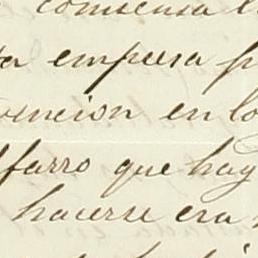 comienza l
ta empresa p
vencion en lo
lfarro que hay
hacerse era